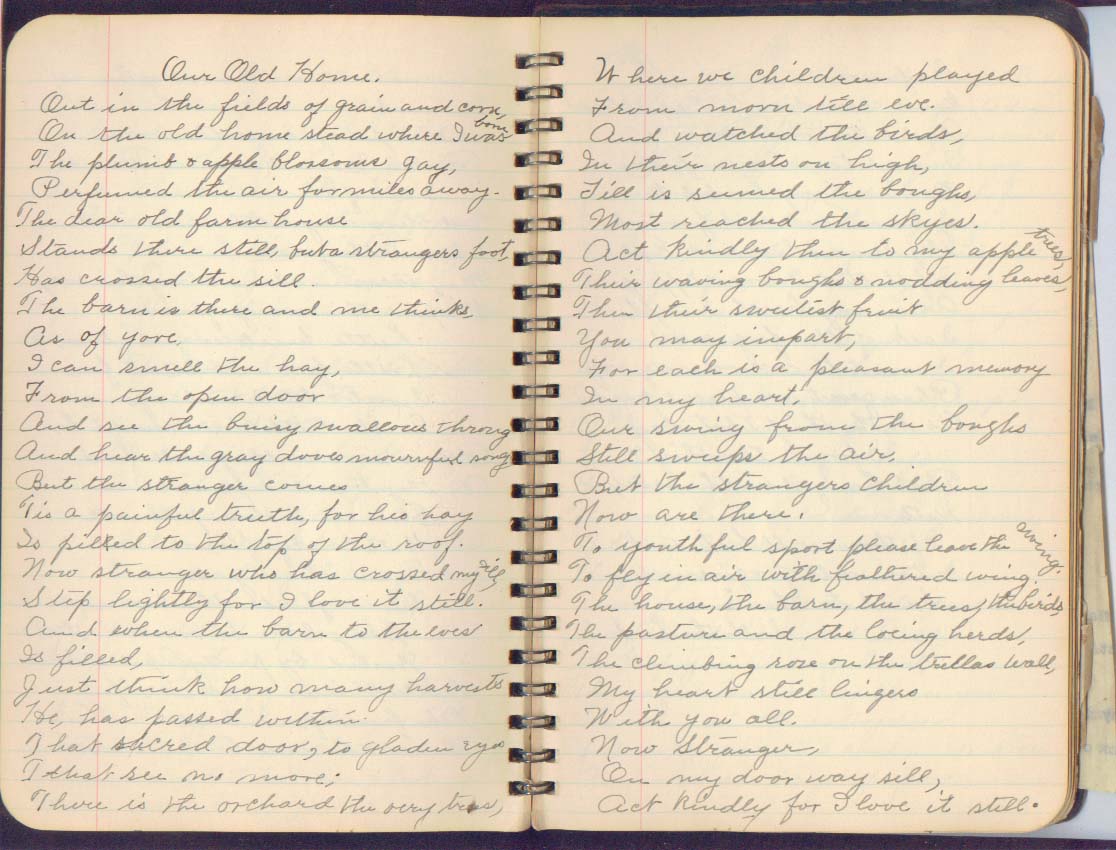 Our Old Home.
Out in the fields of grain and corn,
On the old home stead where I was born
The plumb & apple blossoms gay,
Perfumed the air for miles away.
The dear old farm house
Stands there still, but a strangers foot,
Has crossed the sill.
The barn is there and me thinks,
As of yore,
I can smell the hay,
From the open door
And see the buisy swallows throng
And hear the gray doves mournful song
But the stranger comes
Tis a painful truth, for his hay
Is pilled to the top of the roof.
Now stranger who has crossed my sill,
Step lightly for I love it still.
And when the barn to the eves
Is filled,
Just think how many harvests
He, has passed within
That sacred door, to gladen eyes
That see no more;
There is the orchard the very trees,
Where we children played
From morn till eve.
And watched the birds,
In their nests on high,
Till is seemed the boughs,
Most reached the skyes.
Act kindly then to my apple trees,
Their waving boughs & nodding leaves,
Then their sweetest fruit
You may impart,
For each is a pleasant memory
In my heart.
Our swing from the boughs
Still sweeps the air,
But the strangers children
Now are there.
To youthful sport please leave the swing.
To fly in air with feathered wing.
The house, the barn, the trees, the birds,
The pasture and the loeing herds,
The climbing rose on the trellas wall,
My heart still lingers
With you all.
Now Stranger,
On my door way sill,
Act kindly for I love it still.